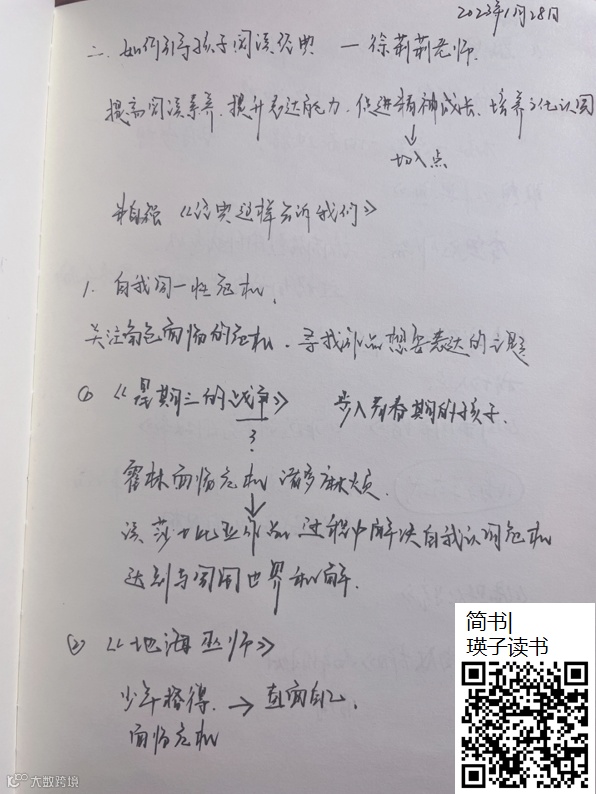 2023年1月28日
二、如何引导孩子阅读经典 —徐莉莉老师
提高阅读素养、提升表达能力、促进精神成长、培养文化认同
↓
切入点
朱自强《经典这样告诉我们》
1. 自我同一性危机、
关注角色面临的危机、寻找作品想要表达的主题
① 《星期三的战争》 步入青春期的孩子、
?
霍林面临危机 诸多麻烦
↓
读莎士比亚作品 过程中解决自我认同危机
达到与周围世界和解.
② 《地海巫师》
少年格得、→ 直面自己、
面临危机
简书|
瑛子读书
大数跨境